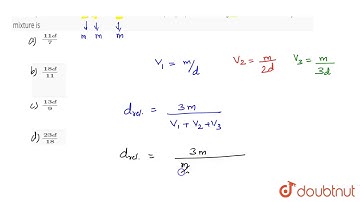 mixture is
↓ ↓ ↓
m m m
a) 11d/7
b) 18d/11
c) 13d/9
d) 23d/18
V₁ = m/d V₂ = m/2d V₃ = m/3d
d_rel. = 3m/(V₁ + V₂ + V₃)
d_rel. = 3m/
m
doubtnut